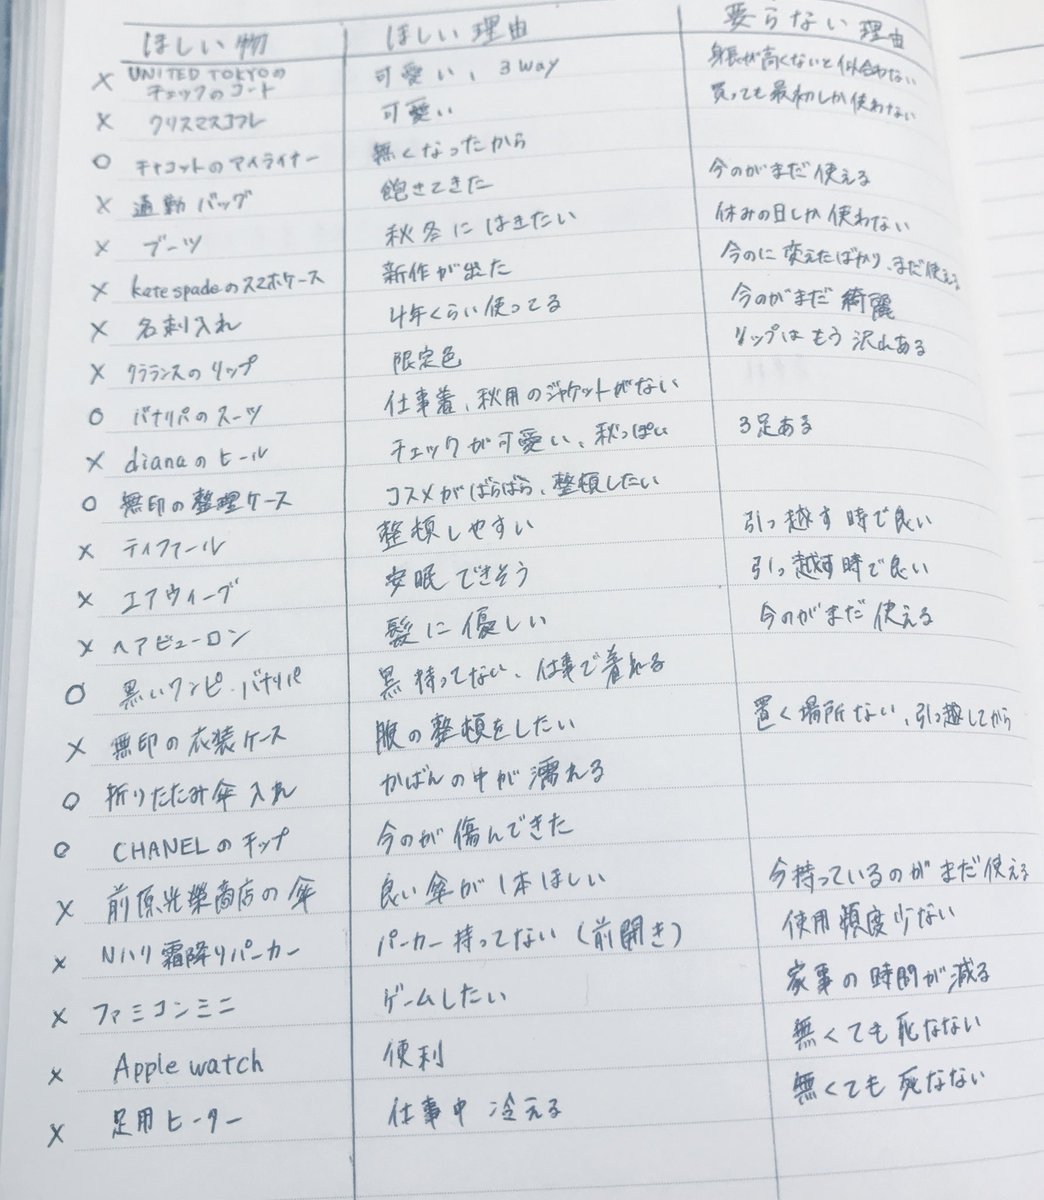 ほしい物 ほしい理由 要らない理由
× UNITED TOKYOの 可愛い、3way 身長が高くないと似合わない
チェックのコート
× クリスマスコフレ 可愛い 買っても最初しか使わない
○ チャコットのアイライナー 無くなったから
× 通勤バッグ 飽きてきた 今のがまだ使える
× ブーツ 秋冬にはきたい 休みの日しか使わない
× kate spadeのスマホケース 新作が出た 今のに変えたばかり、まだ使える
× 名刺入れ 4年くらい使ってる 今のがまだ綺麗
× クラランスのリップ 限定色 リップはもう沢山ある
○ バナリパのスーツ 仕事着、秋用のジャケットがない
× dianaのヒール チェックが可愛い、秋っぽい 3足ある
○ 無印の整理ケース コスメがばらばら、整頓したい
× ティファール 整頓しやすい 引っ越す時で良い
× エアウィーグ 安眠できそう 引っ越す時で良い
× ヘアビューロン 髪に優しい 今のがまだ使える
○ 黒いワンピ・バナリパ 黒持ってない、仕事で着れる
× 無印の衣装ケース 服の整頓をしたい 置く場所ない、引っ越してから
○ 折りたたみ傘入れ かばんの中が濡れる
○ CHANELのチップ 今のが傷んできた
× 前原光榮商店の傘 良い傘が1本ほしい 今持っているのがまだ使える
× Nハリ霜降りパーカー パーカー持ってない(前開き) 使用頻度少ない
× ファミコンミニ ゲームしたい 家事の時間が減る
× Apple watch 便利 無くても死なない
× 足用ヒーター 仕事中冷える 無くても死なない